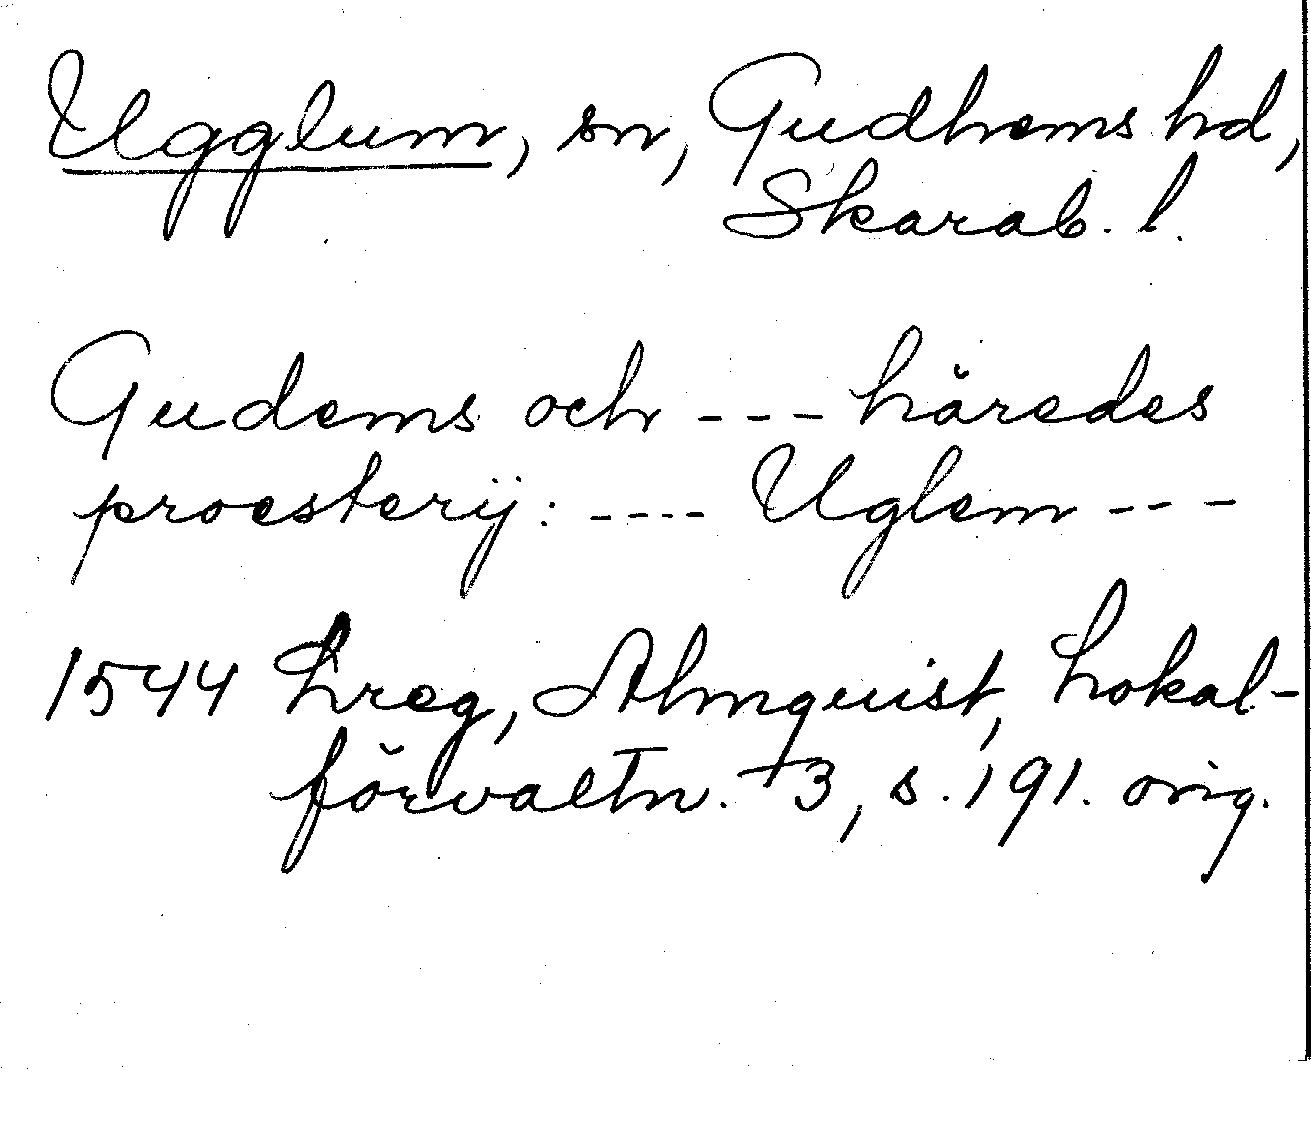 Ugglum, sn, Gudhems hd,
Skarab. l.
Gudems och --- häredes
proesterÿ: ---- Uglem ---
1544 Lreg, Almquist, Lokal-
förvaltn. 3, s. 191. orig.